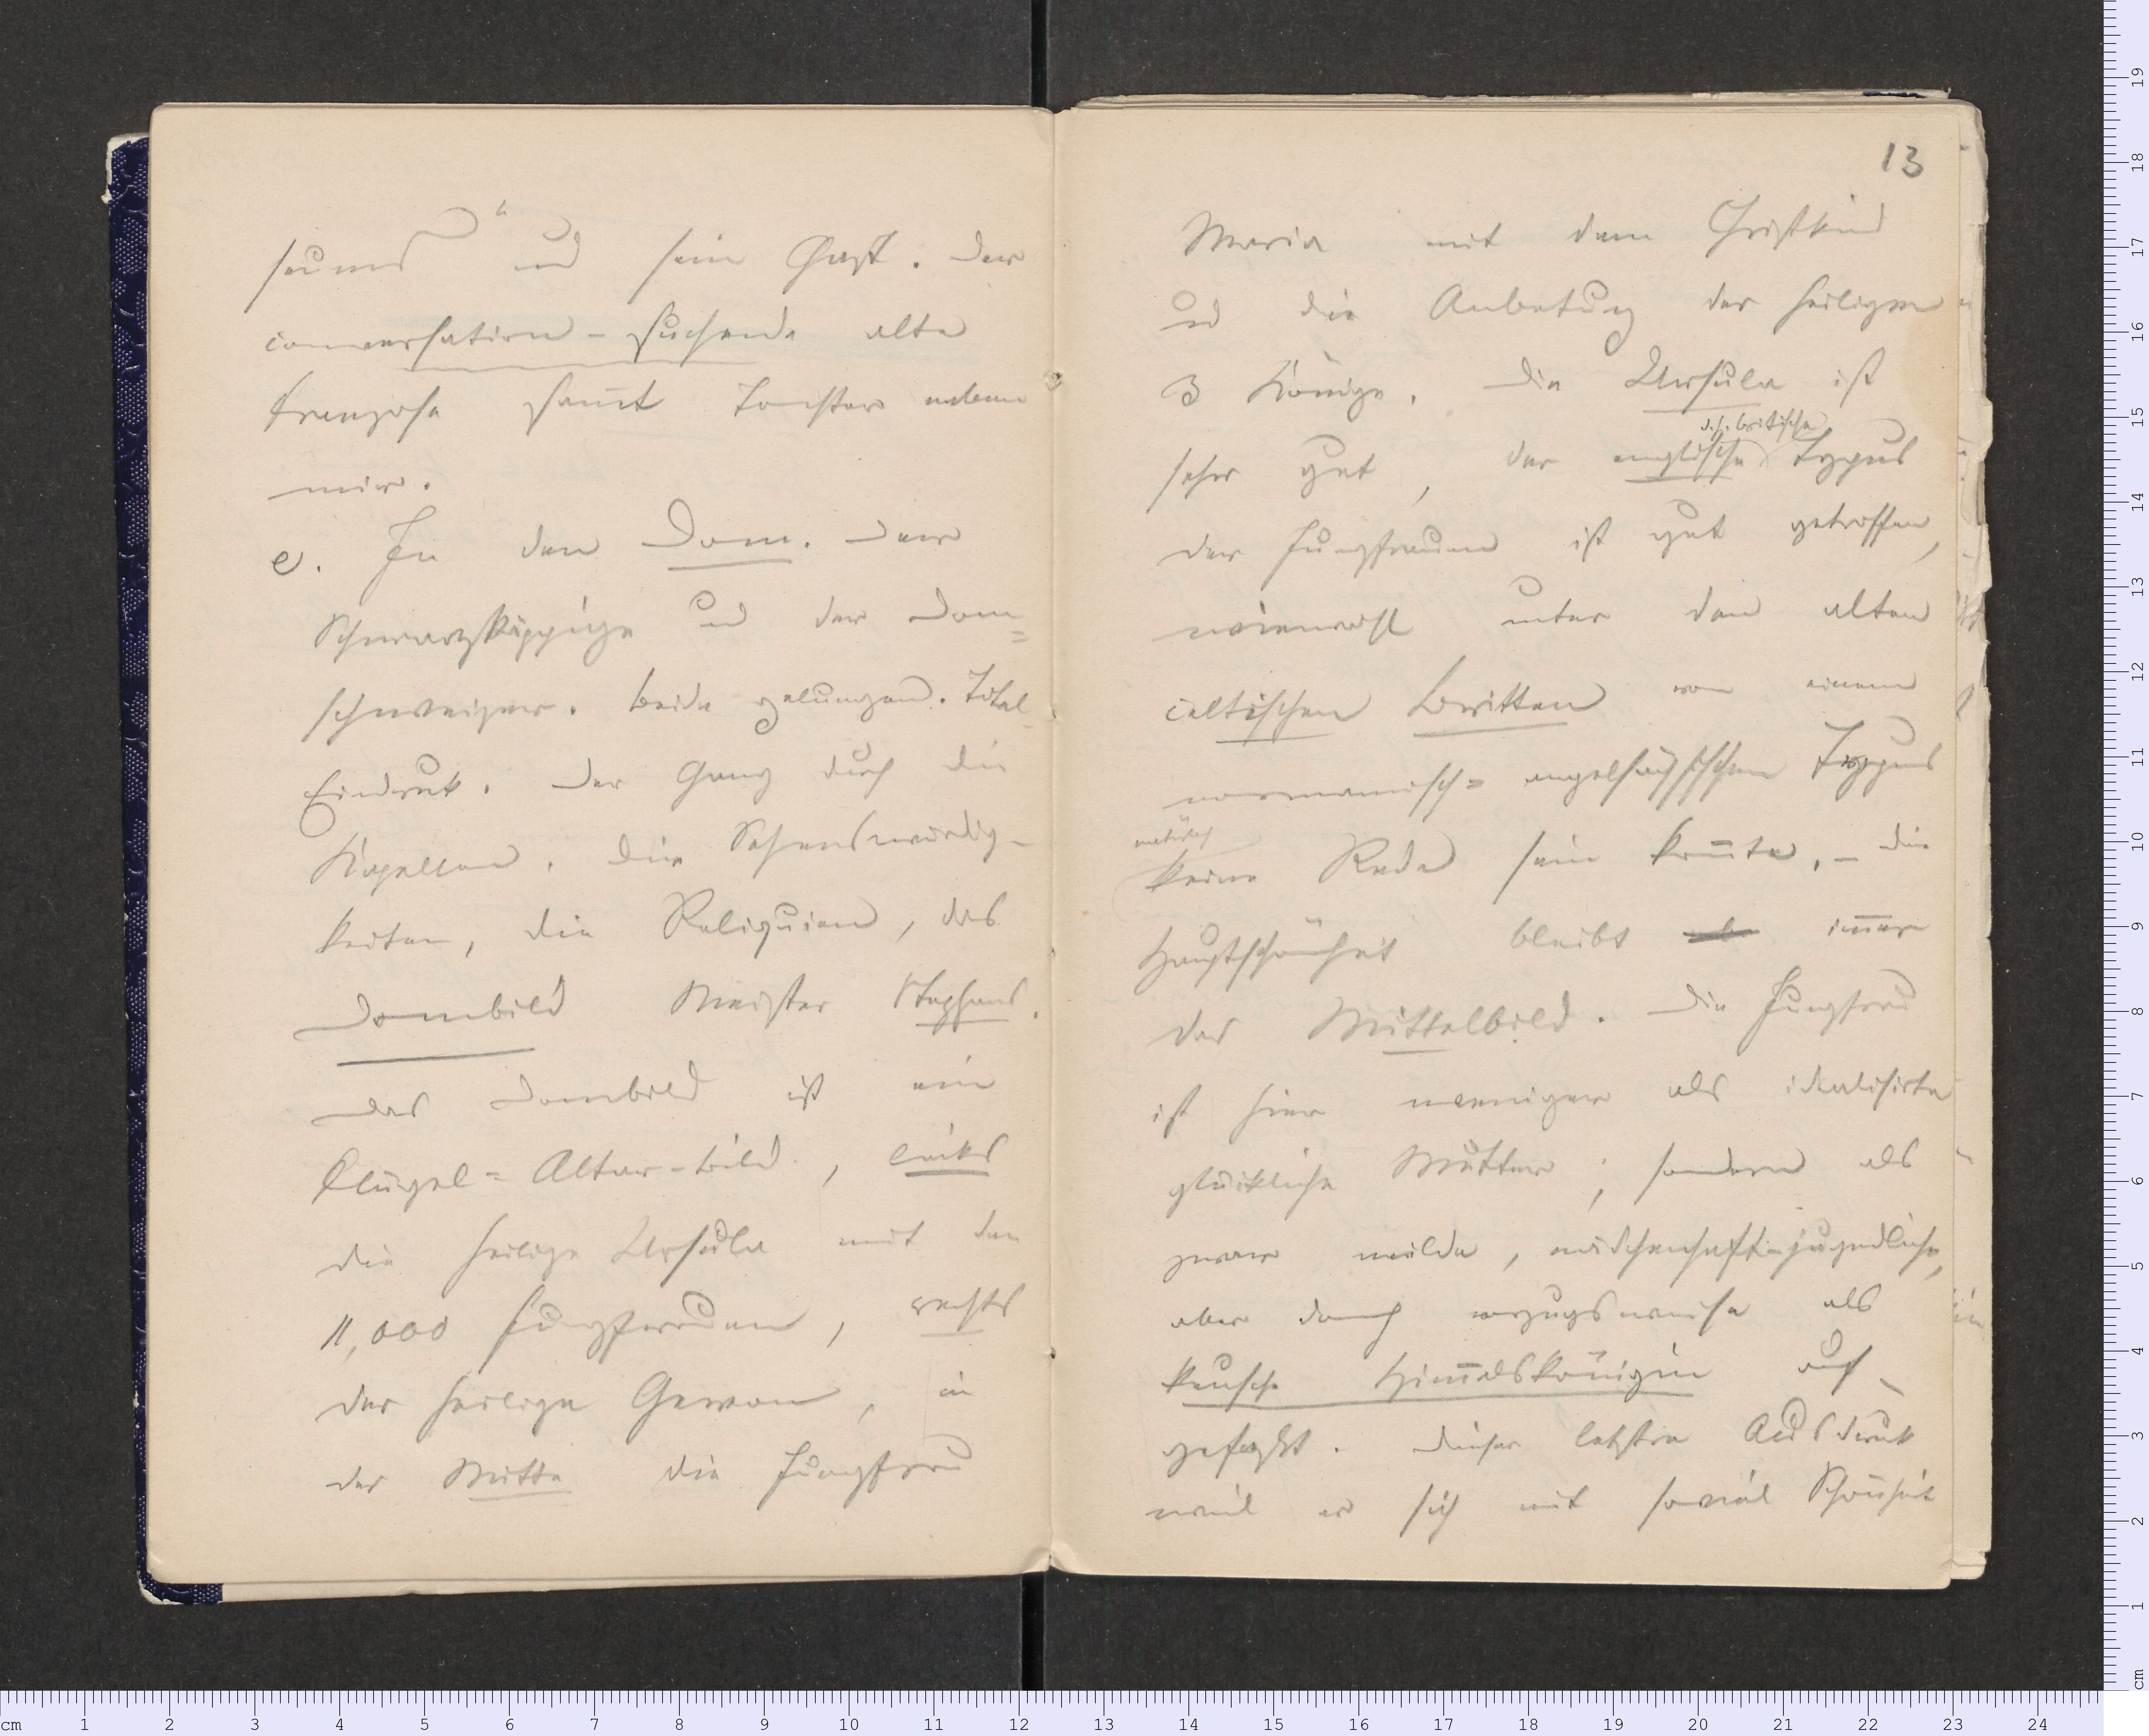 seums“ und sein Gast. Der
conversation-suchende alte
Franzose samt Tochter neben
mir.
e. In den Dom. Der
Schwarzkäppige und der Dom=
schweizer. beide gelungen. Total-
Eindruck. Der Gang durch die
Kapellen. Die Sehenswürdig-
keiten, die Reliquien, das
Dombild Meister Stephans.
Das Dombild ist ein
Flügel=Altar-bild, links
die heilige Ursula mit den
11,000 Jungfrauen, rechts
der heilige Gereon, in
der Mitte die Jungfrau
13
Maria mit dem Christkind
und die Anbetung der heiligen
3 Könige. Die Ursula ist
d.h. britische
sehr gut, der englische Typus
der Jungfrauen ist gut getroffen,
wiewohl unter den alten
celtischen Britten von einem
normannisch=angelsächsischen Typus
natürlich
keine Rede sein konnte. – Die
Hauptschönheit bleibt immer
das Mittelbild. Die Jungfrau
ist hier weniger als idealisirte
glückliche Mutter; sondern als
zwar milde, mädchenhaft-jugendliche,
aber doch vorzugsweise als
keusche Himmelskönigin auf-
gefaßt. Dieser letztre Ausdruck
weil er sich mit soviel Schönheit